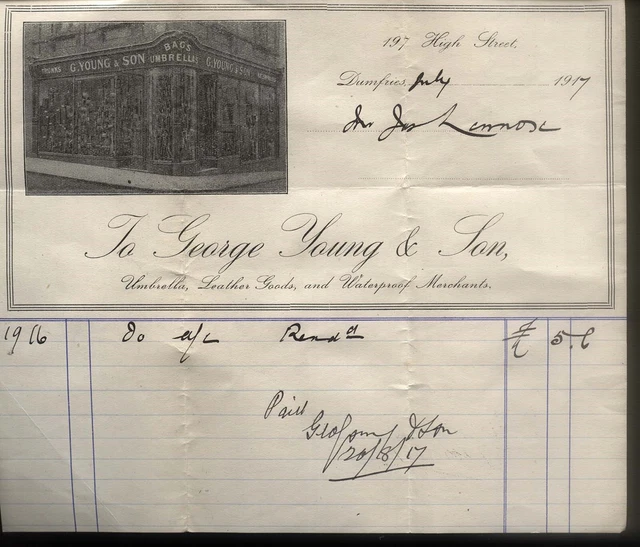 BAGS
TRUNKS G. YOUNG & SON UMBRELLAS G. YOUNG & SON
197 High Street,
Dumfries, July 1917
Mr Jas Lennox
To George Young & Son,
Umbrella, Leather Goods, and Waterproof Merchants.
1916 To a/c Rendd £ 5. 6
Paid
Geo Young & Son
20/8/17